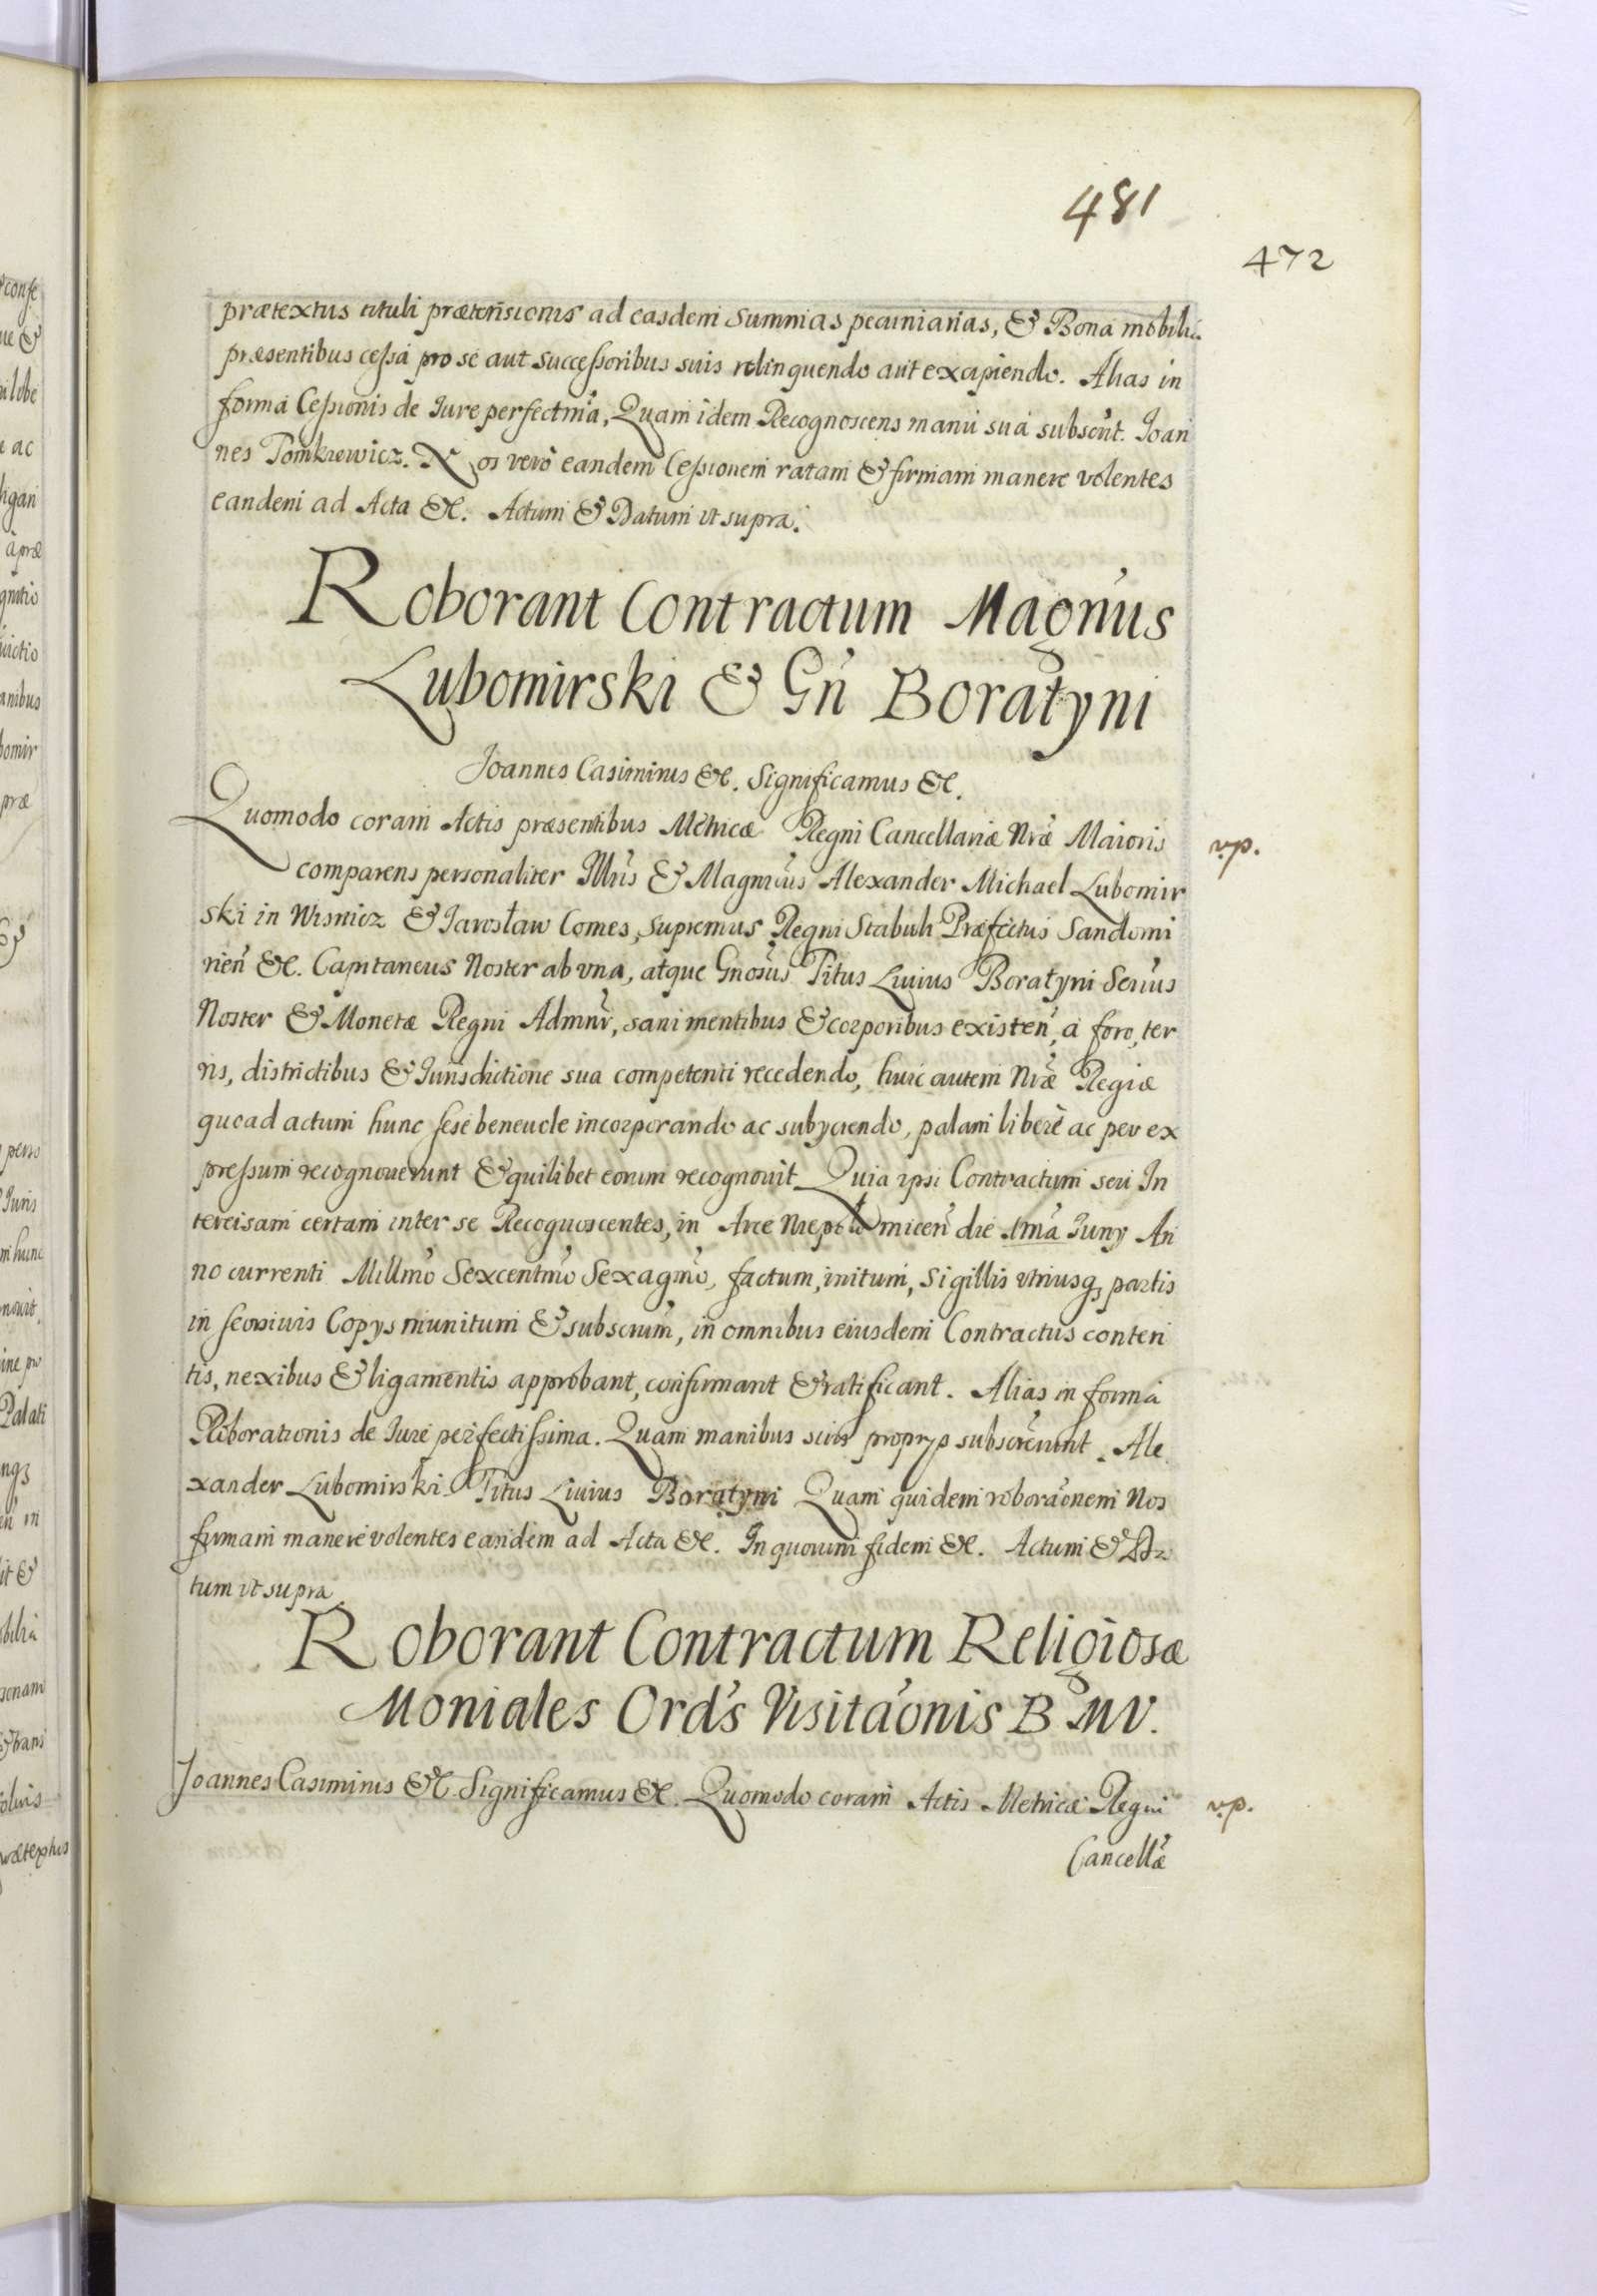 481
472
prætextus tituli prætensionis ad easdem Summas pecuniarias, & Bona mobilia
præsentibus cessa pro se aut successoribus suis relinquendo aut excipiendo. Alias in
forma Cessionis de Jure perfectma, Quam idem Recognoscens manu sua subscrit. Joan
nes Tomkiewicz. Nos vero eandem Cessionem ratam & firmam manere volentes
eandem ad Acta &c. Actum & Datum ut supra.
Roborant Contractum Magnus
Lubomirski & Gn Boratyni
Joannes Casimirus &c. Significamus &c.
Quomodo coram Actis præsentibus Metricæ Regni Cancellariæ Nræ Maioris
v.p.
comparens personaliter Illris & Magnicus Alexander Michael Lubomir
ski in Wisnicz & Jarosław Comes, Supremus Regni Stabuli Præfectus Sandomi
rien &c. Capitaneus Noster ab una, atque Gnosus Titus Livius Boratyni Servus
Noster & Monetæ Regni Admnr, sani mentibus & corporibus existen, a foro, ter
ris, districtibus & Jurisdictione sua competenti recedendo, huic autem Nræ Regiæ
quoad actum hunc sese benevole incorporando ac subyciendo, palam libere ac per ex
pressum recognoverunt & quilibet eorum recognovit Quia ipsi Contractum seu In
tercisam certam inter se Recognoscentes, in Arce Niepołomicen die 1ma Juny An
no currenti Millmo Sexcentmo Sexagmo, factum, initum, sigillis utriusq partis
in Copys munitum & subscrum, in omnibus eiusdem Contractus conten
tis, nexibus & ligamentis approbant, confirmant & ratificant. Alias in forma
Roborationis de Jure perfectissima. Quam manibus suis proprys subscrerunt. Ale
xander Lubomirski Titus Livius Boratyni Quam quidem roboraonem Nos
firmam manere volentes eandem ad Acta &c. In quorum fidem &c. Actum & Da
tum ut supra
Roborant Contractum Religiosæ
Moniales Ord's Visitaonis B MV.
Joannes Casimirus &c Significamus &c. Quomodo coram Actis Metricæ Regni
v.p.
Cancellæ